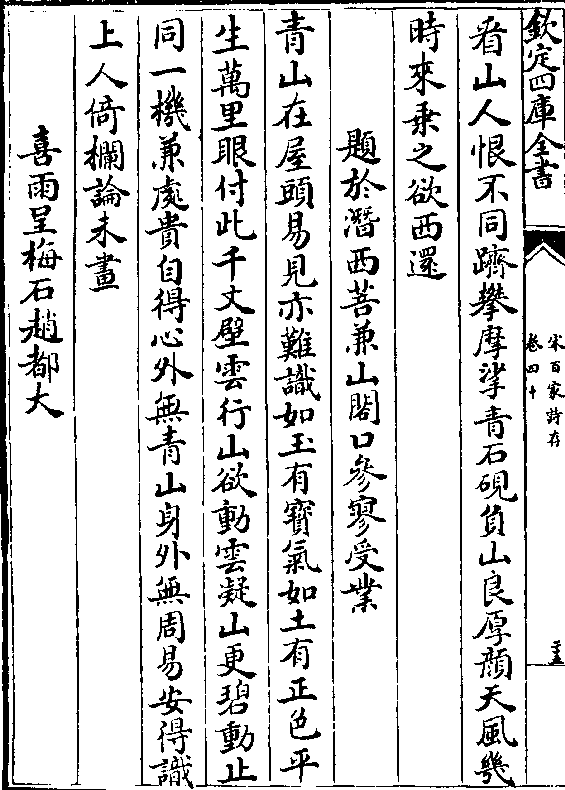 欽定四庫全書
宋百家詩存
卷四十
二十五
看山人恨不同躋攀摩挲青石硯負山良厚顔天風幾
時來乘之欲西還
題於潛西菩兼山閣口參寥受業
青山在屋頭易見亦難識如玉有寶氣如土有正色平
生萬里眼付此千丈壁雲行山欲動雲凝山更碧動止
同一機兼處貴自得心外無青山身外無周易安得識
上人倚欄論未畫
喜雨呈梅石趙都大